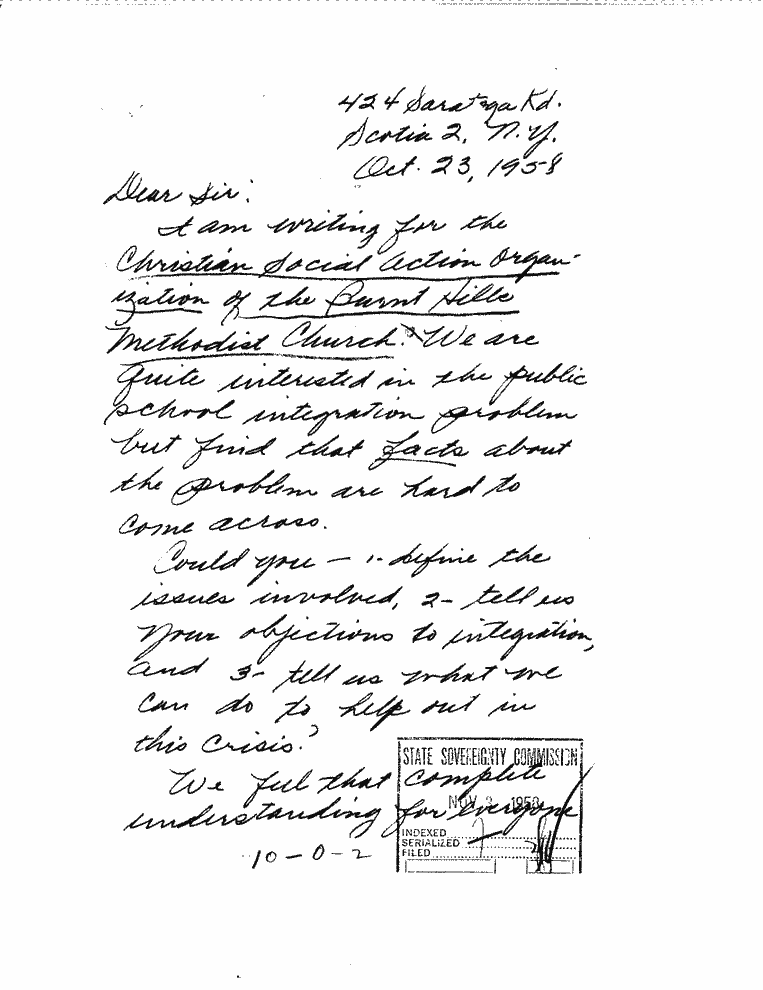 424 Saratoga Rd.
Scotia 2, N.Y.
Oct. 23, 1958
Dear Sir:
I am writing for the
Christian Social Action Organ-
ization of the Burnt Hills
Methodist Church. We are
quite interested in the public
school integration problem
but find that facts about
the problem are hard to
come across.
Could you — 1- define the
issues involved, 2- tell us
your objections to integration,
and 3- tell us what we
can do to help out in
this crisis?
We feel that complete
understanding for everyone
STATE SOVEREIGNTY COMMISSION
NOV 3 1958
INDEXED
SERIALIZED
FILED
10-0-2